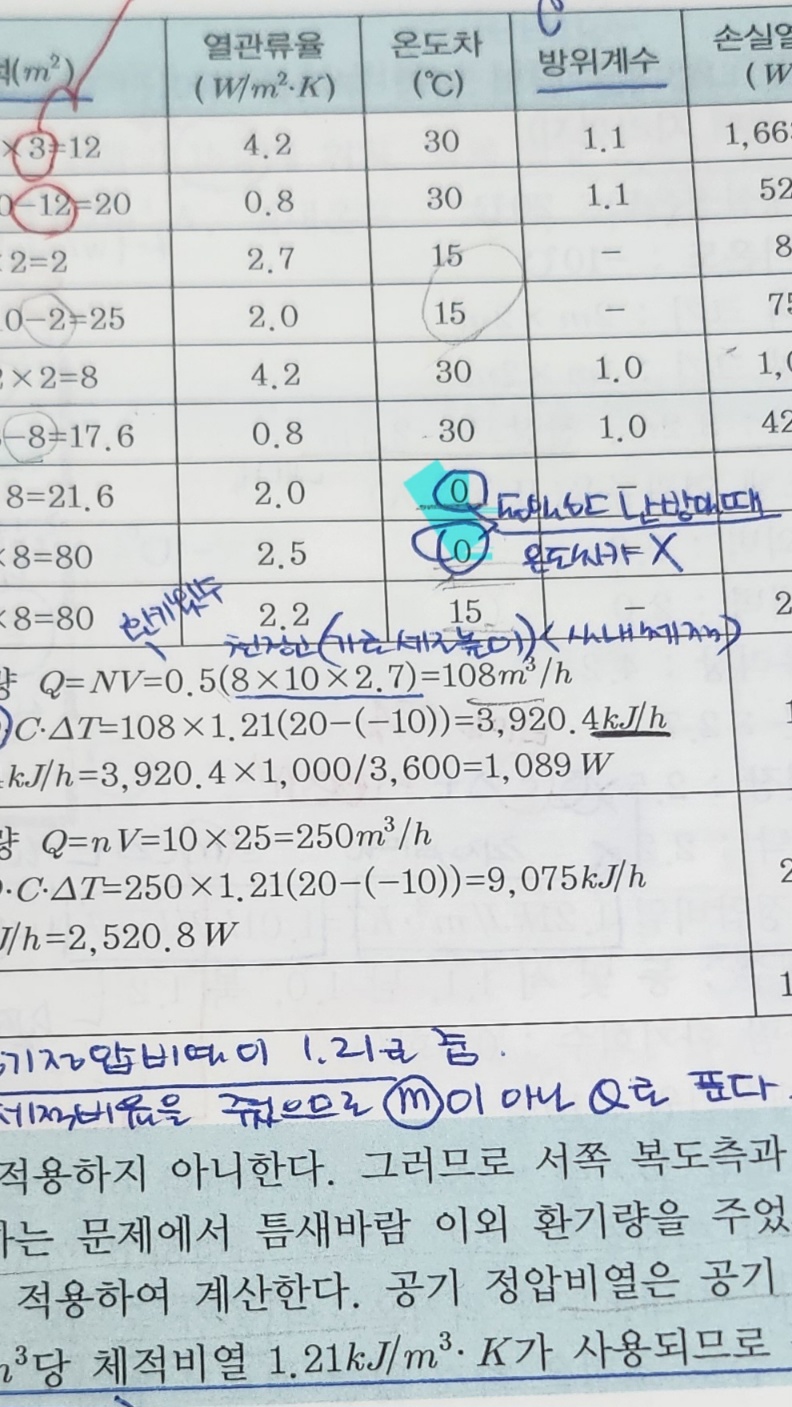 (m²) 열관류율 온도차 방위계수 손실열
(W/m²·K) (℃) (W
×3=12 4.2 30 1.1 1,66
0−12=20 0.8 30 1.1 52
2=2 2.7 15 − 8
0−2=25 2.0 15 − 75
×2=8 4.2 30 1.0 1,0
−8=17.6 0.8 30 1.0 42
8=21.6 2.0 0 난방때매
×8=80 2.5 0 온도차가 X
×8=80 2.2 15 − 2
환기횟수 천장높이 (실내체적)
량 Q=NV=0.5(8×10×2.7)=108m³/h
C·ΔT=108×1.21(20−(−10))=3,920.4kJ/h 1
kJ/h=3,920.4×1,000/3,600=1,089 W
량 Q=nV=10×25=250m³/h
·C·ΔT=250×1.21(20−(−10))=9,075kJ/h 2
J/h=2,520.8 W
1
기정압비열이 1.21로 줌.
체적비열을 줬으므로 m이 아닌 Q로 푼다.
적용하지 아니한다. 그러므로 서쪽 복도측과
는 문제에서 틈새바람 이외 환기량을 주었
적용하여 계산한다. 공기 정압비열은 공기
m³당 체적비열 1.21kJ/m³·K가 사용되므로